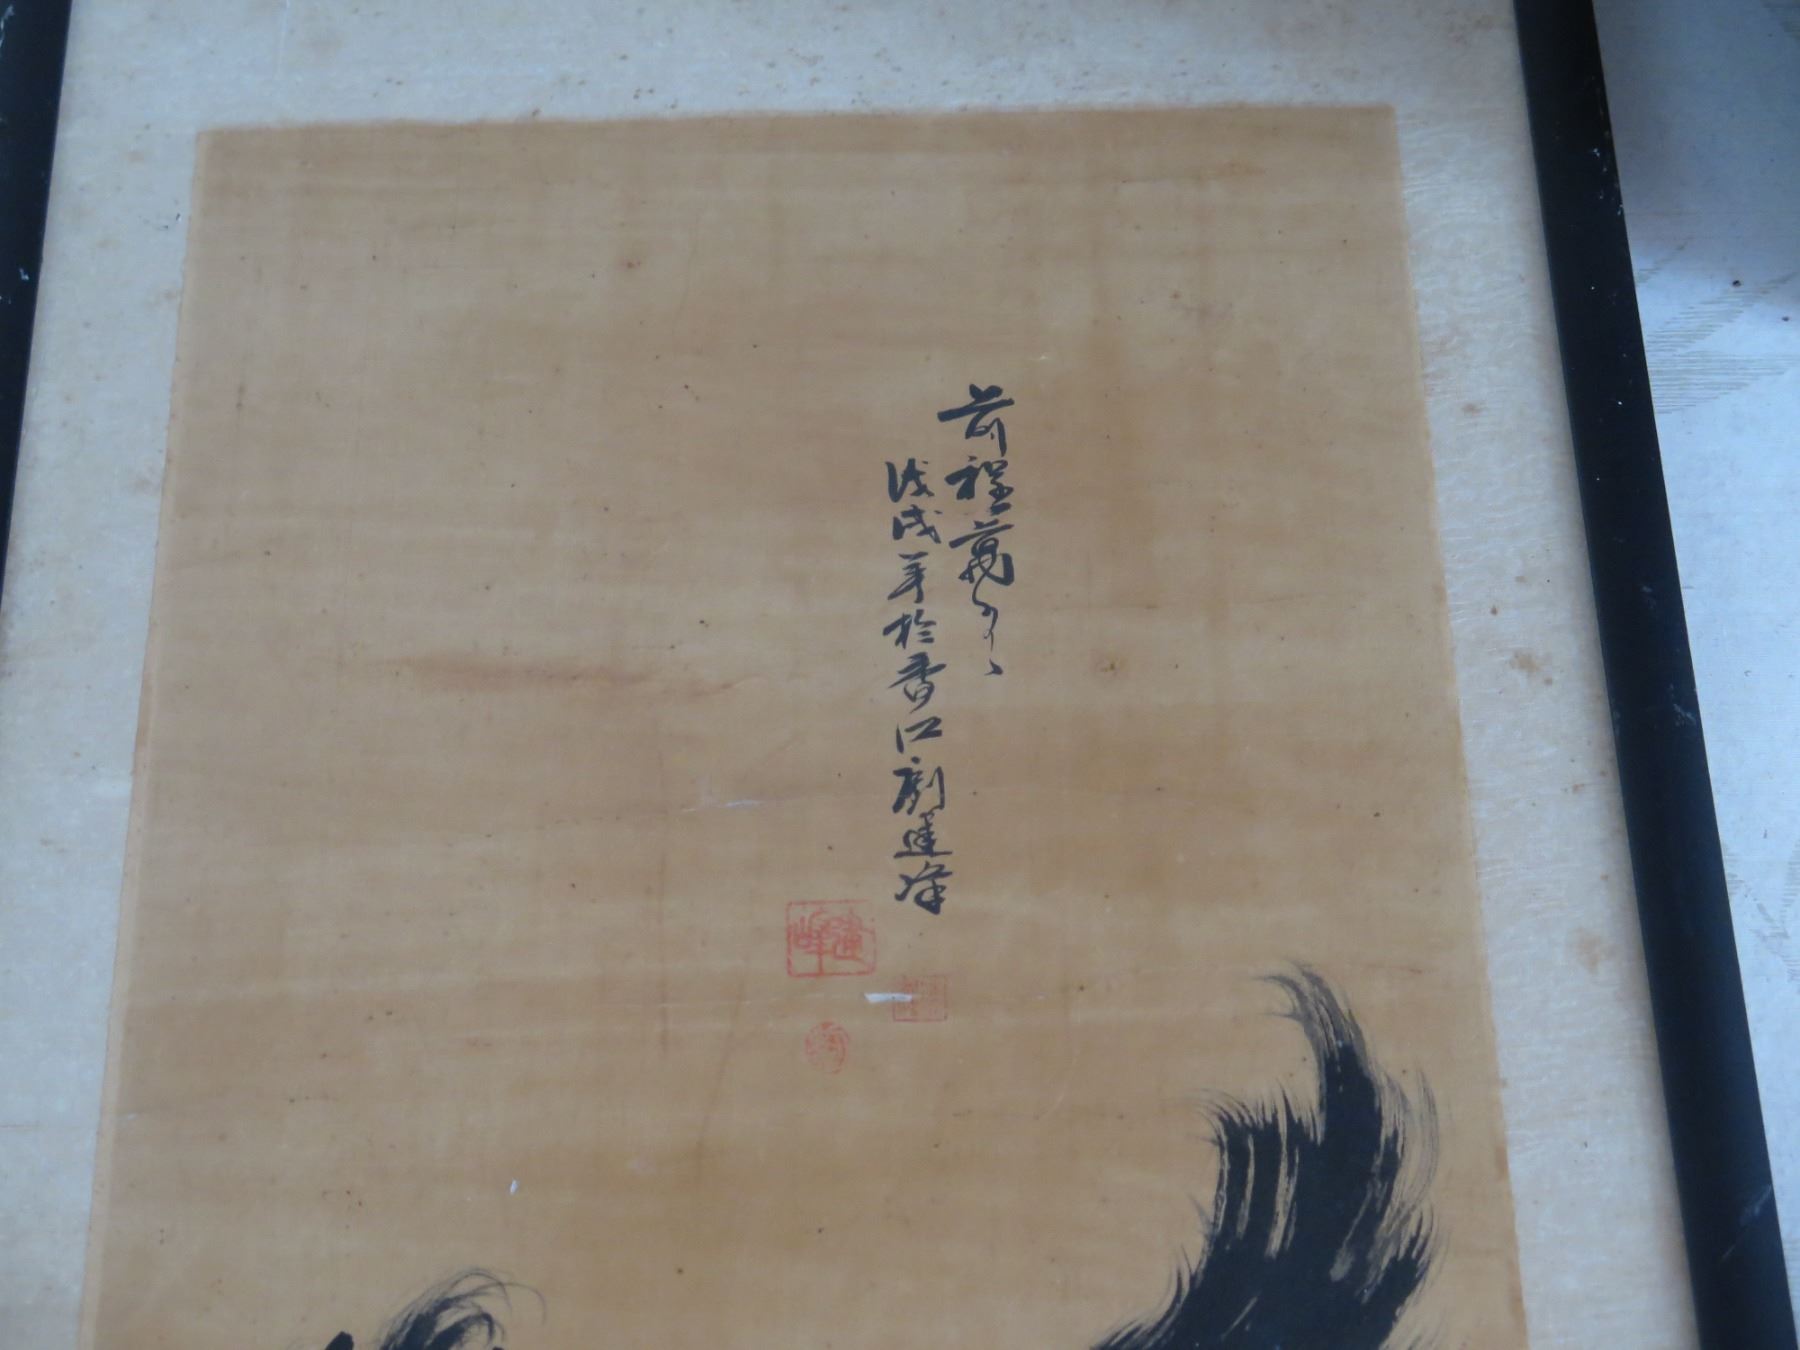 前程萬里
戊戌年於香江劉建峰
建峰